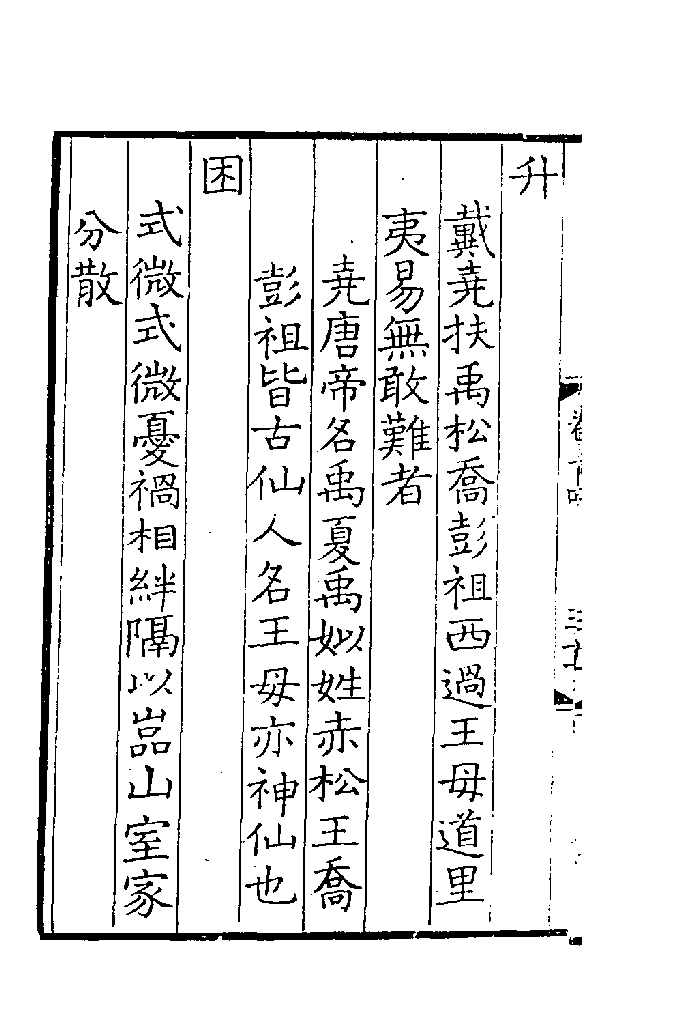 升
戴堯扶禹松喬彭祖西過王母道里
夷易無敢難者
堯唐帝名禹夏禹姒姓赤松王喬
彭祖皆古仙人名王母亦神仙也
困
式微式微憂禍相絆隔以嵓山室家
分散